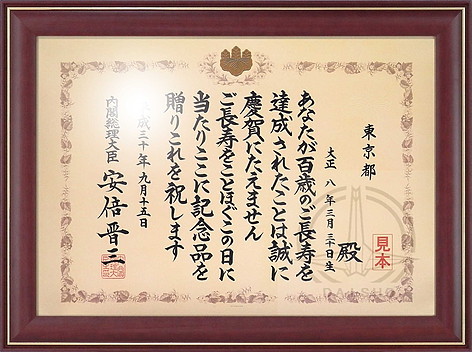 東京都
大正 八 年 三月 三十日生
殿
見本
あなたが百歳のご長寿を
達成されたことは誠に
慶賀にたえません
ご長寿をことほぐこの日に
当たりここに記念品を
贈りこれを祝します
成三十年九月十五日
内閣総理大臣 安倍晋三